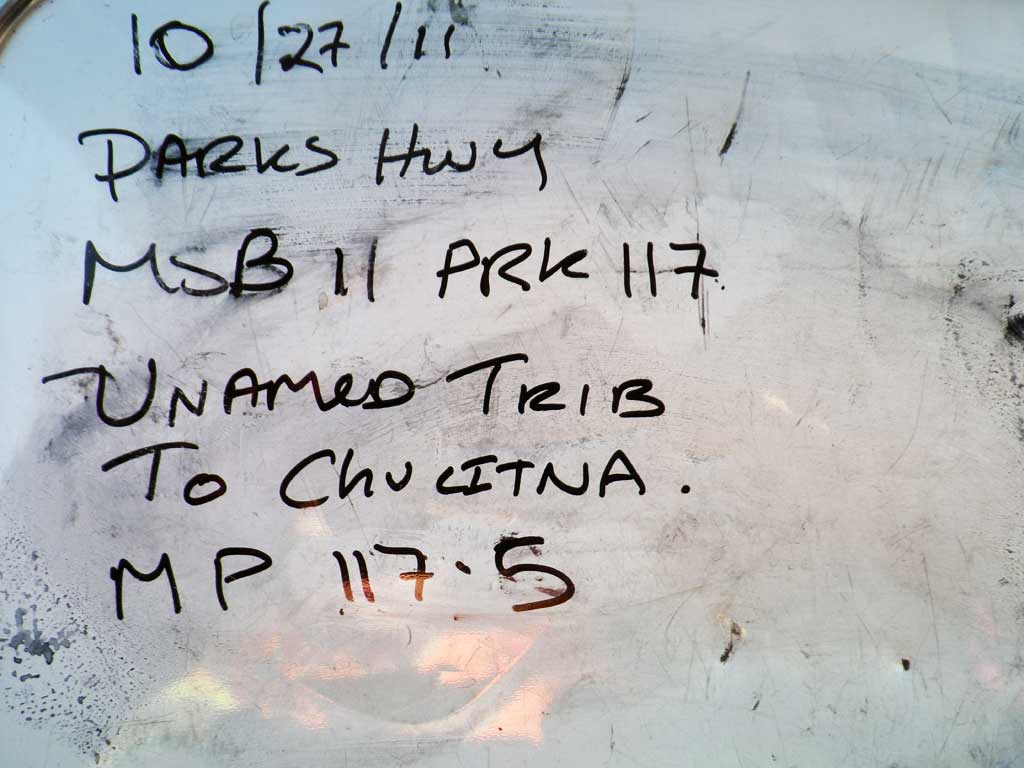 10/27/11
PARKS HWY
MSB 11 PRK 117
UNAMED TRIB
TO CHULITNA.
MP 117.5